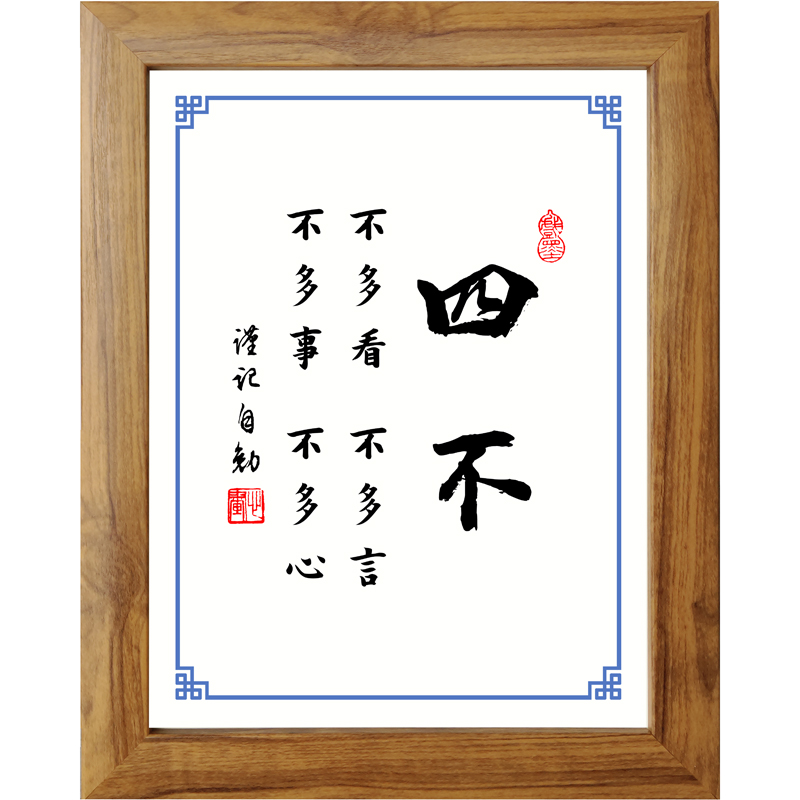 四不
不多看 不多言
不多事 不多心
謹記自勉